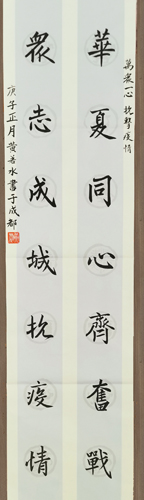 萬衆一心 抗擊疫情
華夏同心齊奮戰
衆志成城抗疫情
庚子正月黄善水書于成都